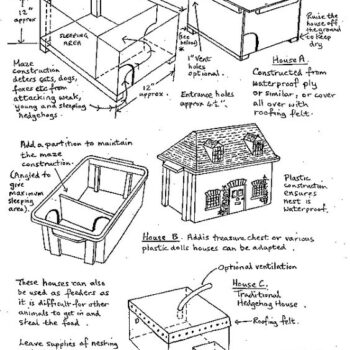 12"
approx
SLEEPING
AREA
Maze
construction
deters cats, dogs,
foxes etc from
attacking weak,
young and sleeping
hedgehogs.
12"
approx.
(see
below)
1" Vent
holes
optional.
Entrance holes
approx 4½".
Raise the
house off
the ground
to keep
dry
House A.
Constructed from
waterproof ply
or similar, or cover
all over with
roofing felt.
Add a partition to maintain
the maze
construction.
(Angled to
give
maximum
sleeping
area).
Plastic
construction
ensures
nest is
waterproof.
House B. Addis treasure chest or various
plastic dolls houses can be adapted.
These houses can also
be used as feeders as
it is difficult for other
animals to get in and
steal the food.
Leave supplies of nesting
Optional ventilation
House C.
Traditional
Hedgehog House
Roofing felt.